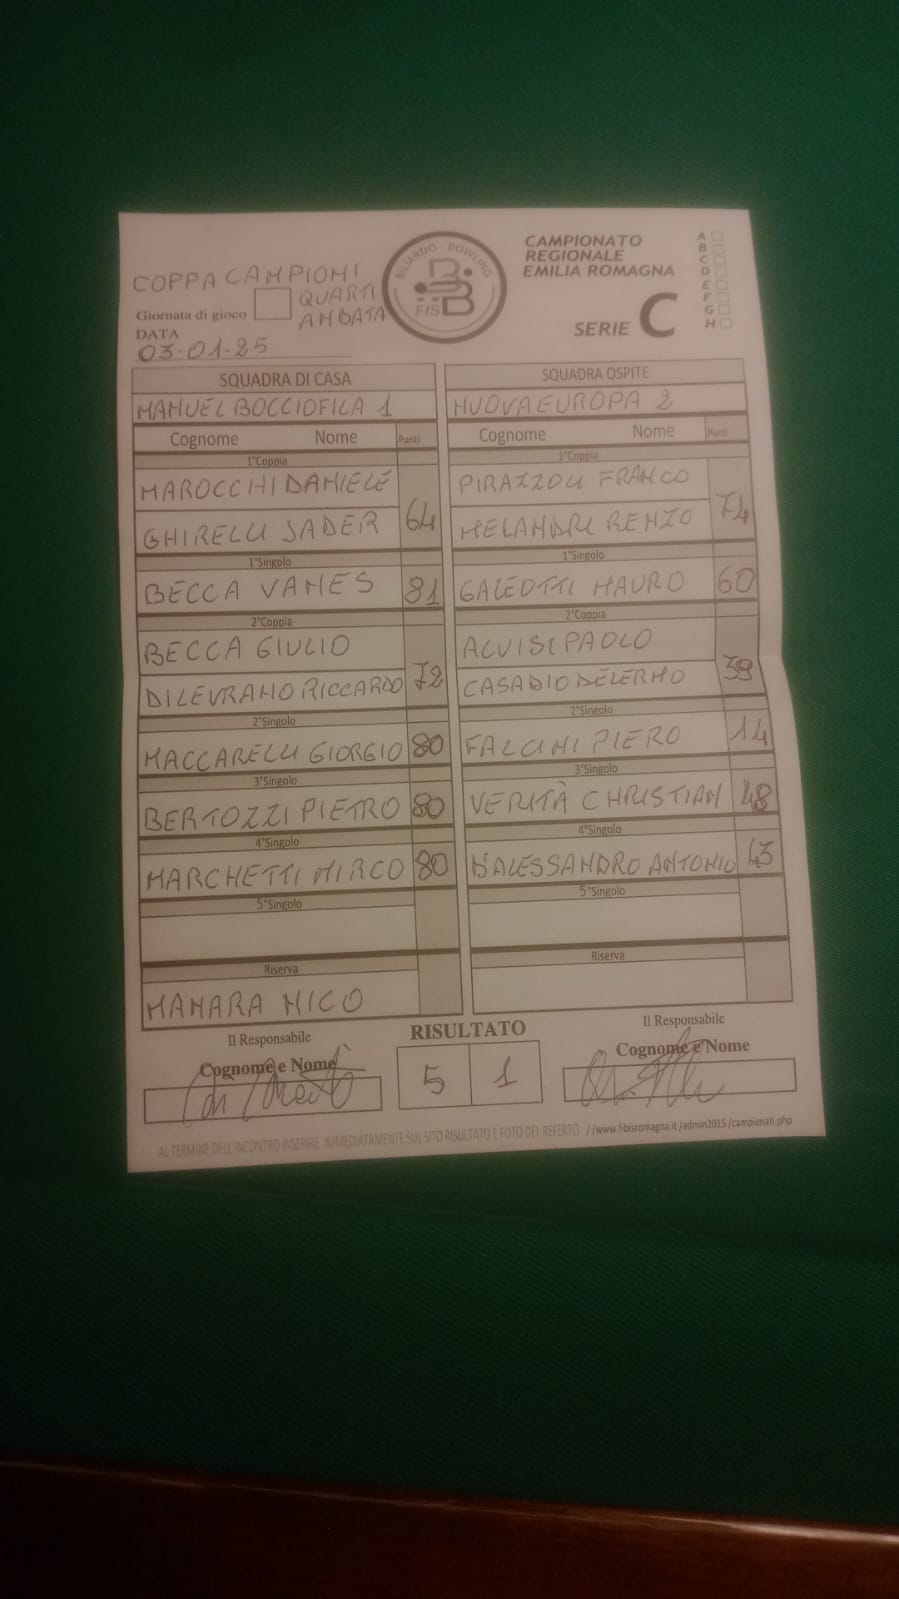 COPPA CAMPIONI
QUARTI
ANDATA
Giornata di gioco
DATA
03-01-25
BILIARDO - BOWLING
FISBB
CAMPIONATO
REGIONALE
EMILIA ROMAGNA
SERIE C
A
B
C
D
E
F
G
H
SQUADRA DI CASA
SQUADRA OSPITE
MANUEL BOCCIOFILA 1
NUOVA EUROPA 2
Cognome Nome Punti
Cognome Nome Punti
1°Coppia
1°Coppia
MAROCCHI DANIELE
PIRAZZOLI FRANCO
64
74
GHIRELLI JADER
MELANDRI RENZO
1°Singolo
1°Singolo
BECCA VANES 81
GALEOTTI MAURO 60
2°Coppia
2°Coppia
BECCA GIULIO
ALVISI PAOLO
72
39
DILEVRANO RICCARDO
CASADIO DELERMO
2°Singolo
2°Singolo
MACCARELLI GIORGIO 80
FALCINI PIERO 14
3°Singolo
3°Singolo
BERTOZZI PIETRO 80
VERITÀ CHRISTIAN 48
4°Singolo
4°Singolo
MARCHETTI MIRCO 80
D'ALESSANDRO ANTONIO 43
5°Singolo
5°Singolo
Riserva
Riserva
MANARA NICO
Il Responsabile
RISULTATO
Il Responsabile
Cognome e Nome
Cognome e Nome
5 1
AL TERMINE DELL'INCONTRO INSERIRE IMMEDIATAMENTE SUL SITO RISULTATO E FOTO DEL REFERTO //www.fibisromagna.it/admin2015/campionati.php